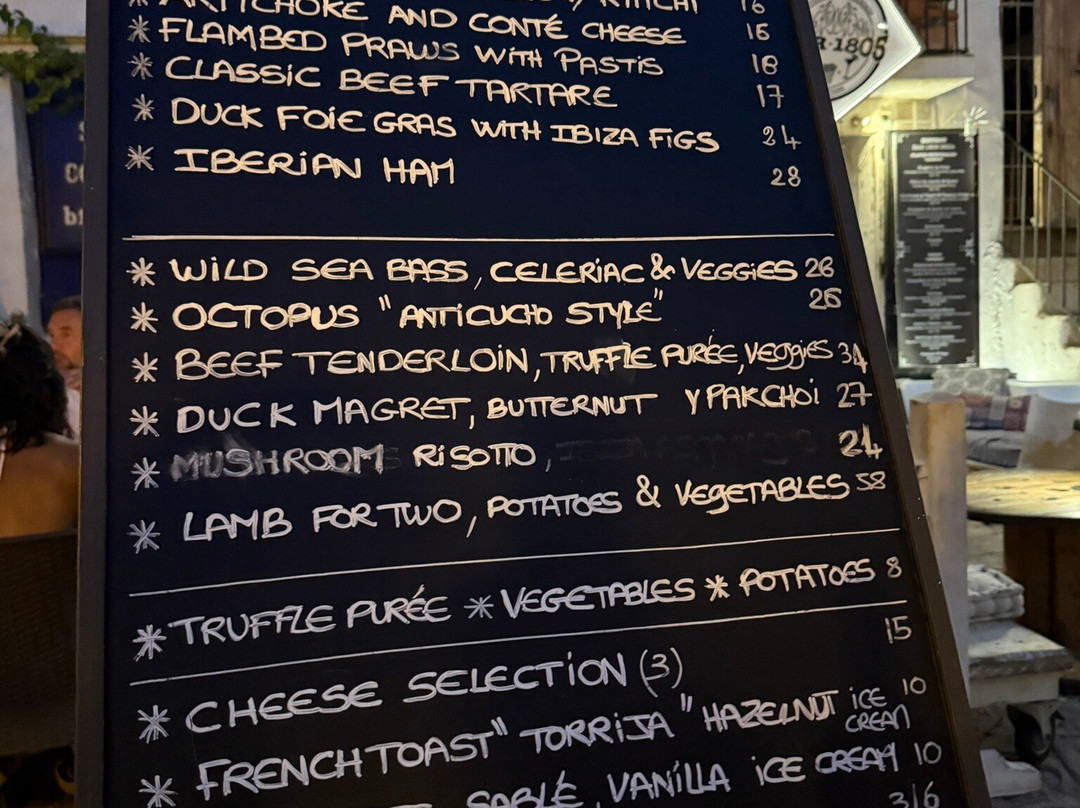 KIMCHI 16
* ARTICHOKE AND CONTÉ CHEESE 15
* FLAMBED PRAWS WITH PASTIS 18
* CLASSIC BEEF TARTARE 17
* DUCK FOIE GRAS WITH IBIZA FIGS 24
* IBERIAN HAM 28
* WILD SEA BASS, CELERIAC & VEGGIES 26
* OCTOPUS "ANTICUCHO STYLE" 26
* BEEF TENDERLOIN, TRUFFLE PURÉE, VEGGIES 34
* DUCK MAGRET, BUTTERNUT Y PAKCHOI 27
* MUSHROOM RISOTTO, 24
* LAMB FOR TWO, POTATOES & VEGETABLES 58
* TRUFFLE PURÉE * VEGETABLES * POTATOES 8
* CHEESE SELECTION (3) 15
* FRENCH TOAST "TORRIJA" HAZELNUT ICE CREAM 10
SABLÉ, VANILLA ICE CREAM 10
3/6
R·1805